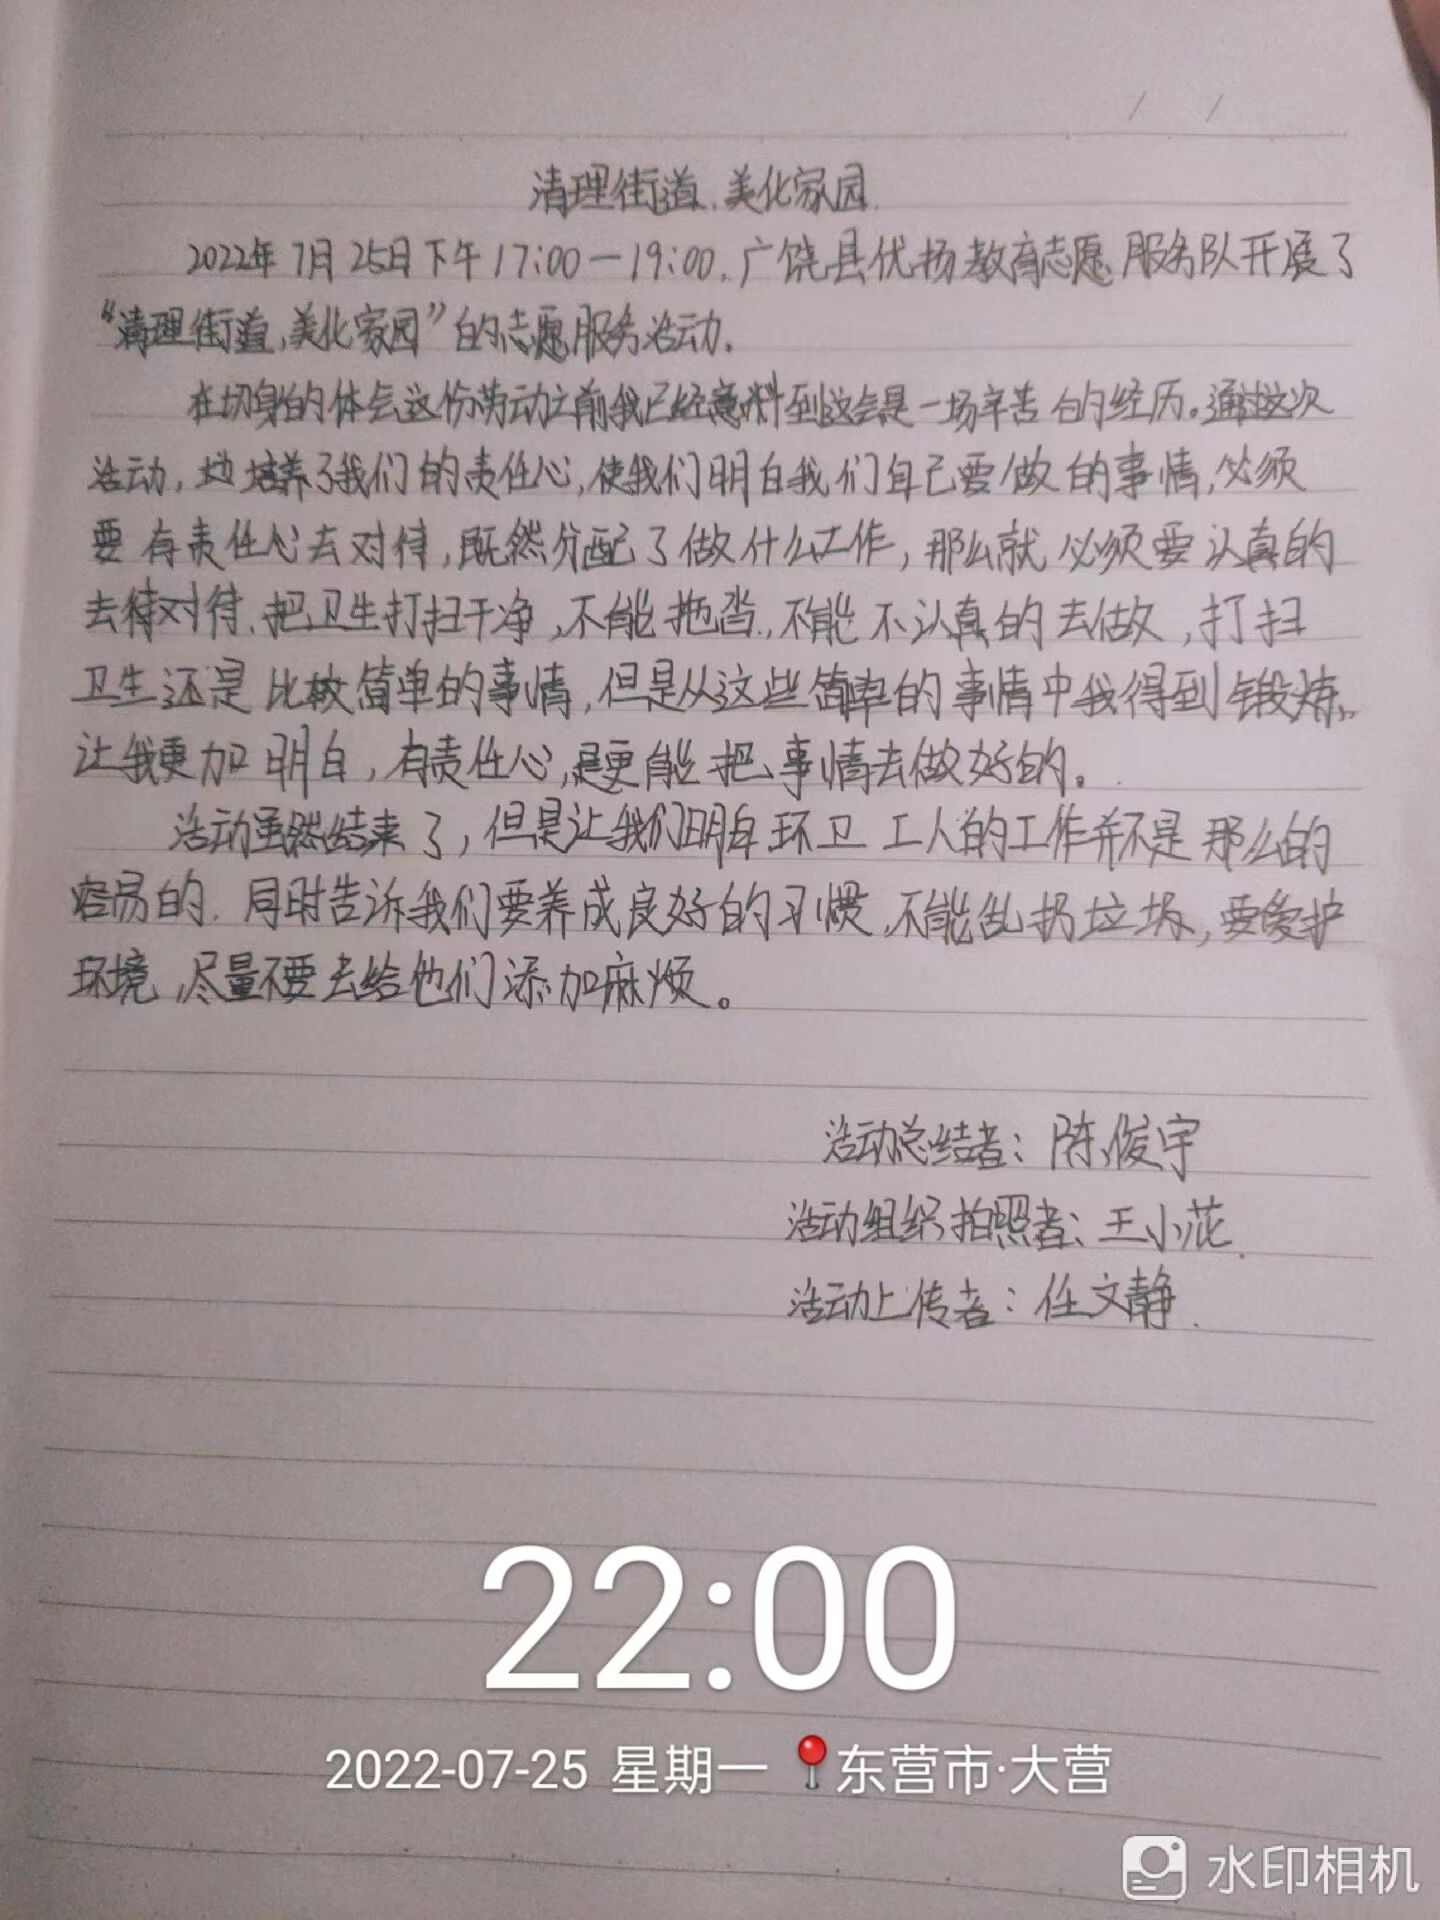 清理街道,美化家园.
2022年7月25日下午17:00—19:00,广饶县优扬教育志愿服务队开展了
“清理街道,美化家园”的志愿服务活动.
在切身的体会这份劳动之前我已经意料到这会是一场辛苦的经历。通过这次
活动,也培养了我们的责任心,使我们明白我们自己要做的事情,必须
要有责任心去对待,既然分配了做什么工作,那么就必须要认真的
去对待.把卫生打扫干净,不能拖沓,不能不认真的去做,打扫
卫生还是比较简单的事情,但是从这些简单的事情中我得到锻炼,
让我更加明白,有责任心,是更能把事情去做好的。
活动虽然结束了,但是让我们明白环卫工人的工作并不是那么的
容易的.同时告诉我们要养成良好的习惯,不能乱扔垃圾,要爱护
环境,尽量不要去给他们添加麻烦。
活动总结者:陈俊宇
活动组织拍照者:王小花.
活动上传者:任文静.
22:00
2022-07-25 星期一 东营市·大营
水印相机